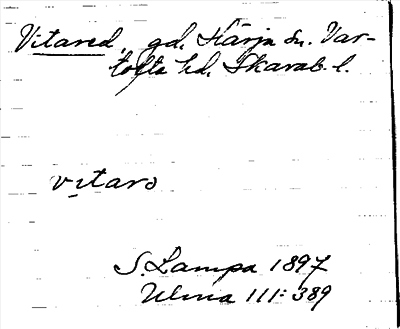 Vitared, gd, Härja sn. Var-
tofta hd, Skarab. l.
vitarɔ
S. Lampa 1897
Ulma 111:389